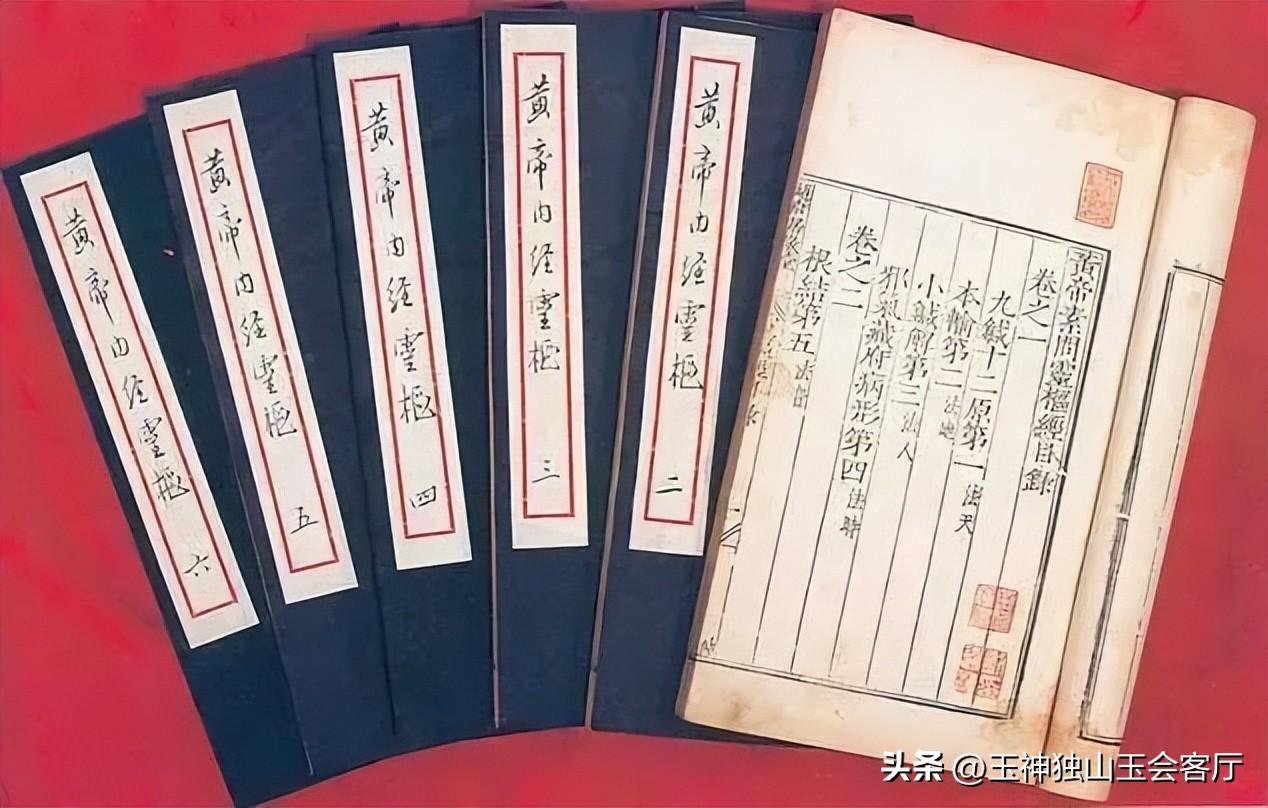 黃帝素問靈樞經目錄
卷之一
九鍼十二原第一 法天
本輸第二 法地
小鍼解第三 法人
邪氣藏府病形第四 法時
卷之二
根結第五 法音
黄帝内经靈樞 二
黄帝内经靈樞 三
黄帝内经靈樞 四
黄帝内经靈樞 五
黄帝内经靈樞 六
头条 @玉神独山玉会客厅